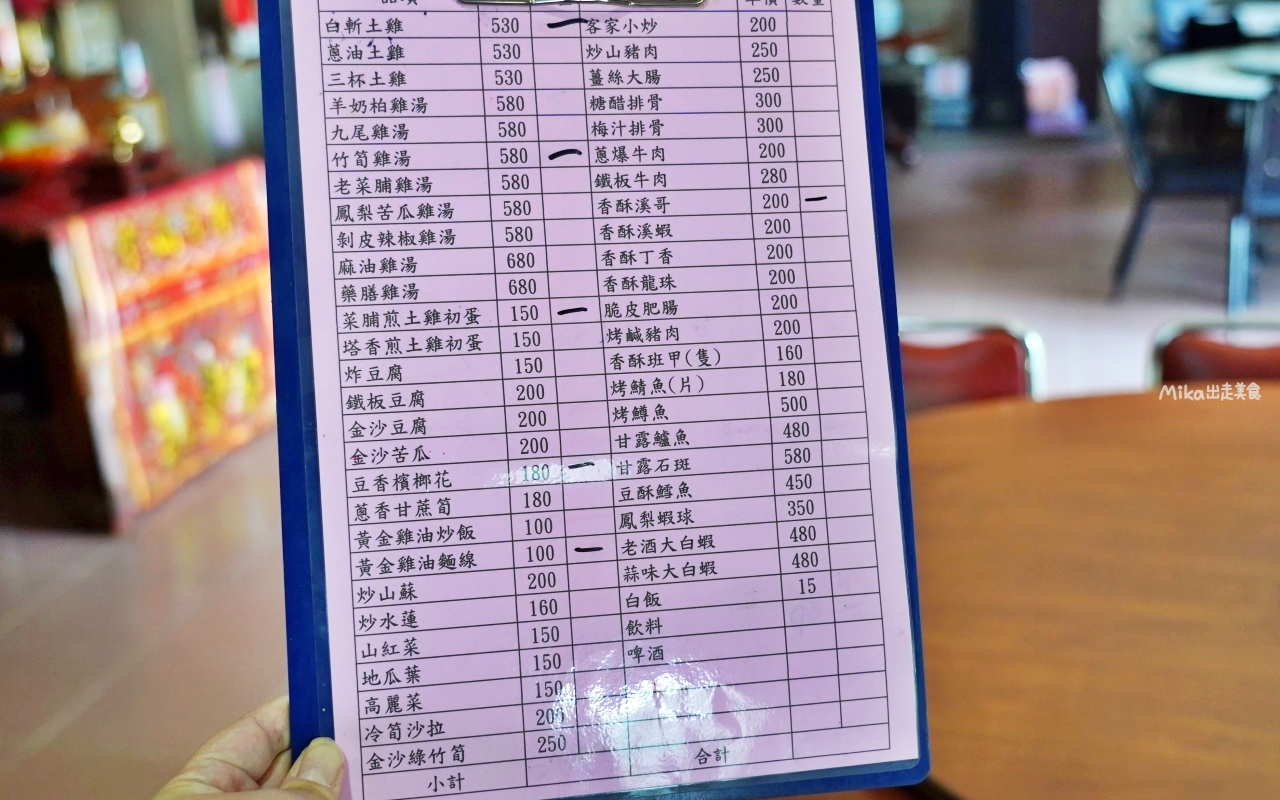 白斬土雞 530 客家小炒 200
蔥油土雞 530 炒山豬肉 250
三杯土雞 530 薑絲大腸 250
羊奶柏雞湯 580 糖醋排骨 300
九尾雞湯 580 梅汁排骨 300
竹筍雞湯 580 蔥爆牛肉 200
老菜脯雞湯 580 鐵板牛肉 280
鳳梨苦瓜雞湯 580 香酥溪哥 200
剝皮辣椒雞湯 580 香酥溪蝦 200
麻油雞湯 680 香酥丁香 200
藥膳雞湯 680 香酥龍珠 200
菜脯煎土雞初蛋 150 脆皮肥腸 200
塔香煎土雞初蛋 150 烤鹹豬肉 200
炸豆腐 150 香酥班甲(隻) 160
鐵板豆腐 200 烤鯖魚(片) 180
金沙豆腐 200 烤鱒魚 500
金沙苦瓜 200 甘露鱸魚 480
豆香檳榔花 180 甘露石斑 580
蔥香甘蔗筍 180 豆酥鱈魚 450
黃金雞油炒飯 100 鳳梨蝦球 350
黃金雞油麵線 100 老酒大白蝦 480
炒山蘇 200 蒜味大白蝦 480
炒水蓮 160 白飯 15
山紅菜 150 飲料
地瓜葉 150 啤酒
高麗菜 150
冷筍沙拉 200
金沙綠竹筍 250
小計 合計
Mika出走美食